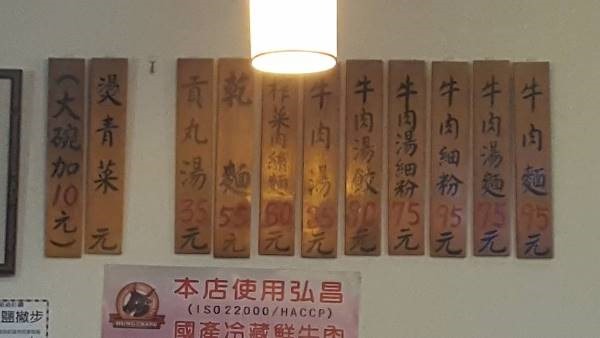 牛肉麵95元
牛肉湯麵75元
牛肉細粉95元
牛肉湯細粉75元
牛肉湯餃 元
牛肉湯 元
榨菜肉絲麵60元
乾麵55元
貢丸湯35元
燙青菜 元
(大碗加10元)
本店使用弘昌
(ISO22000/HACCP)
國產冷藏鮮牛肉
鹽撇步